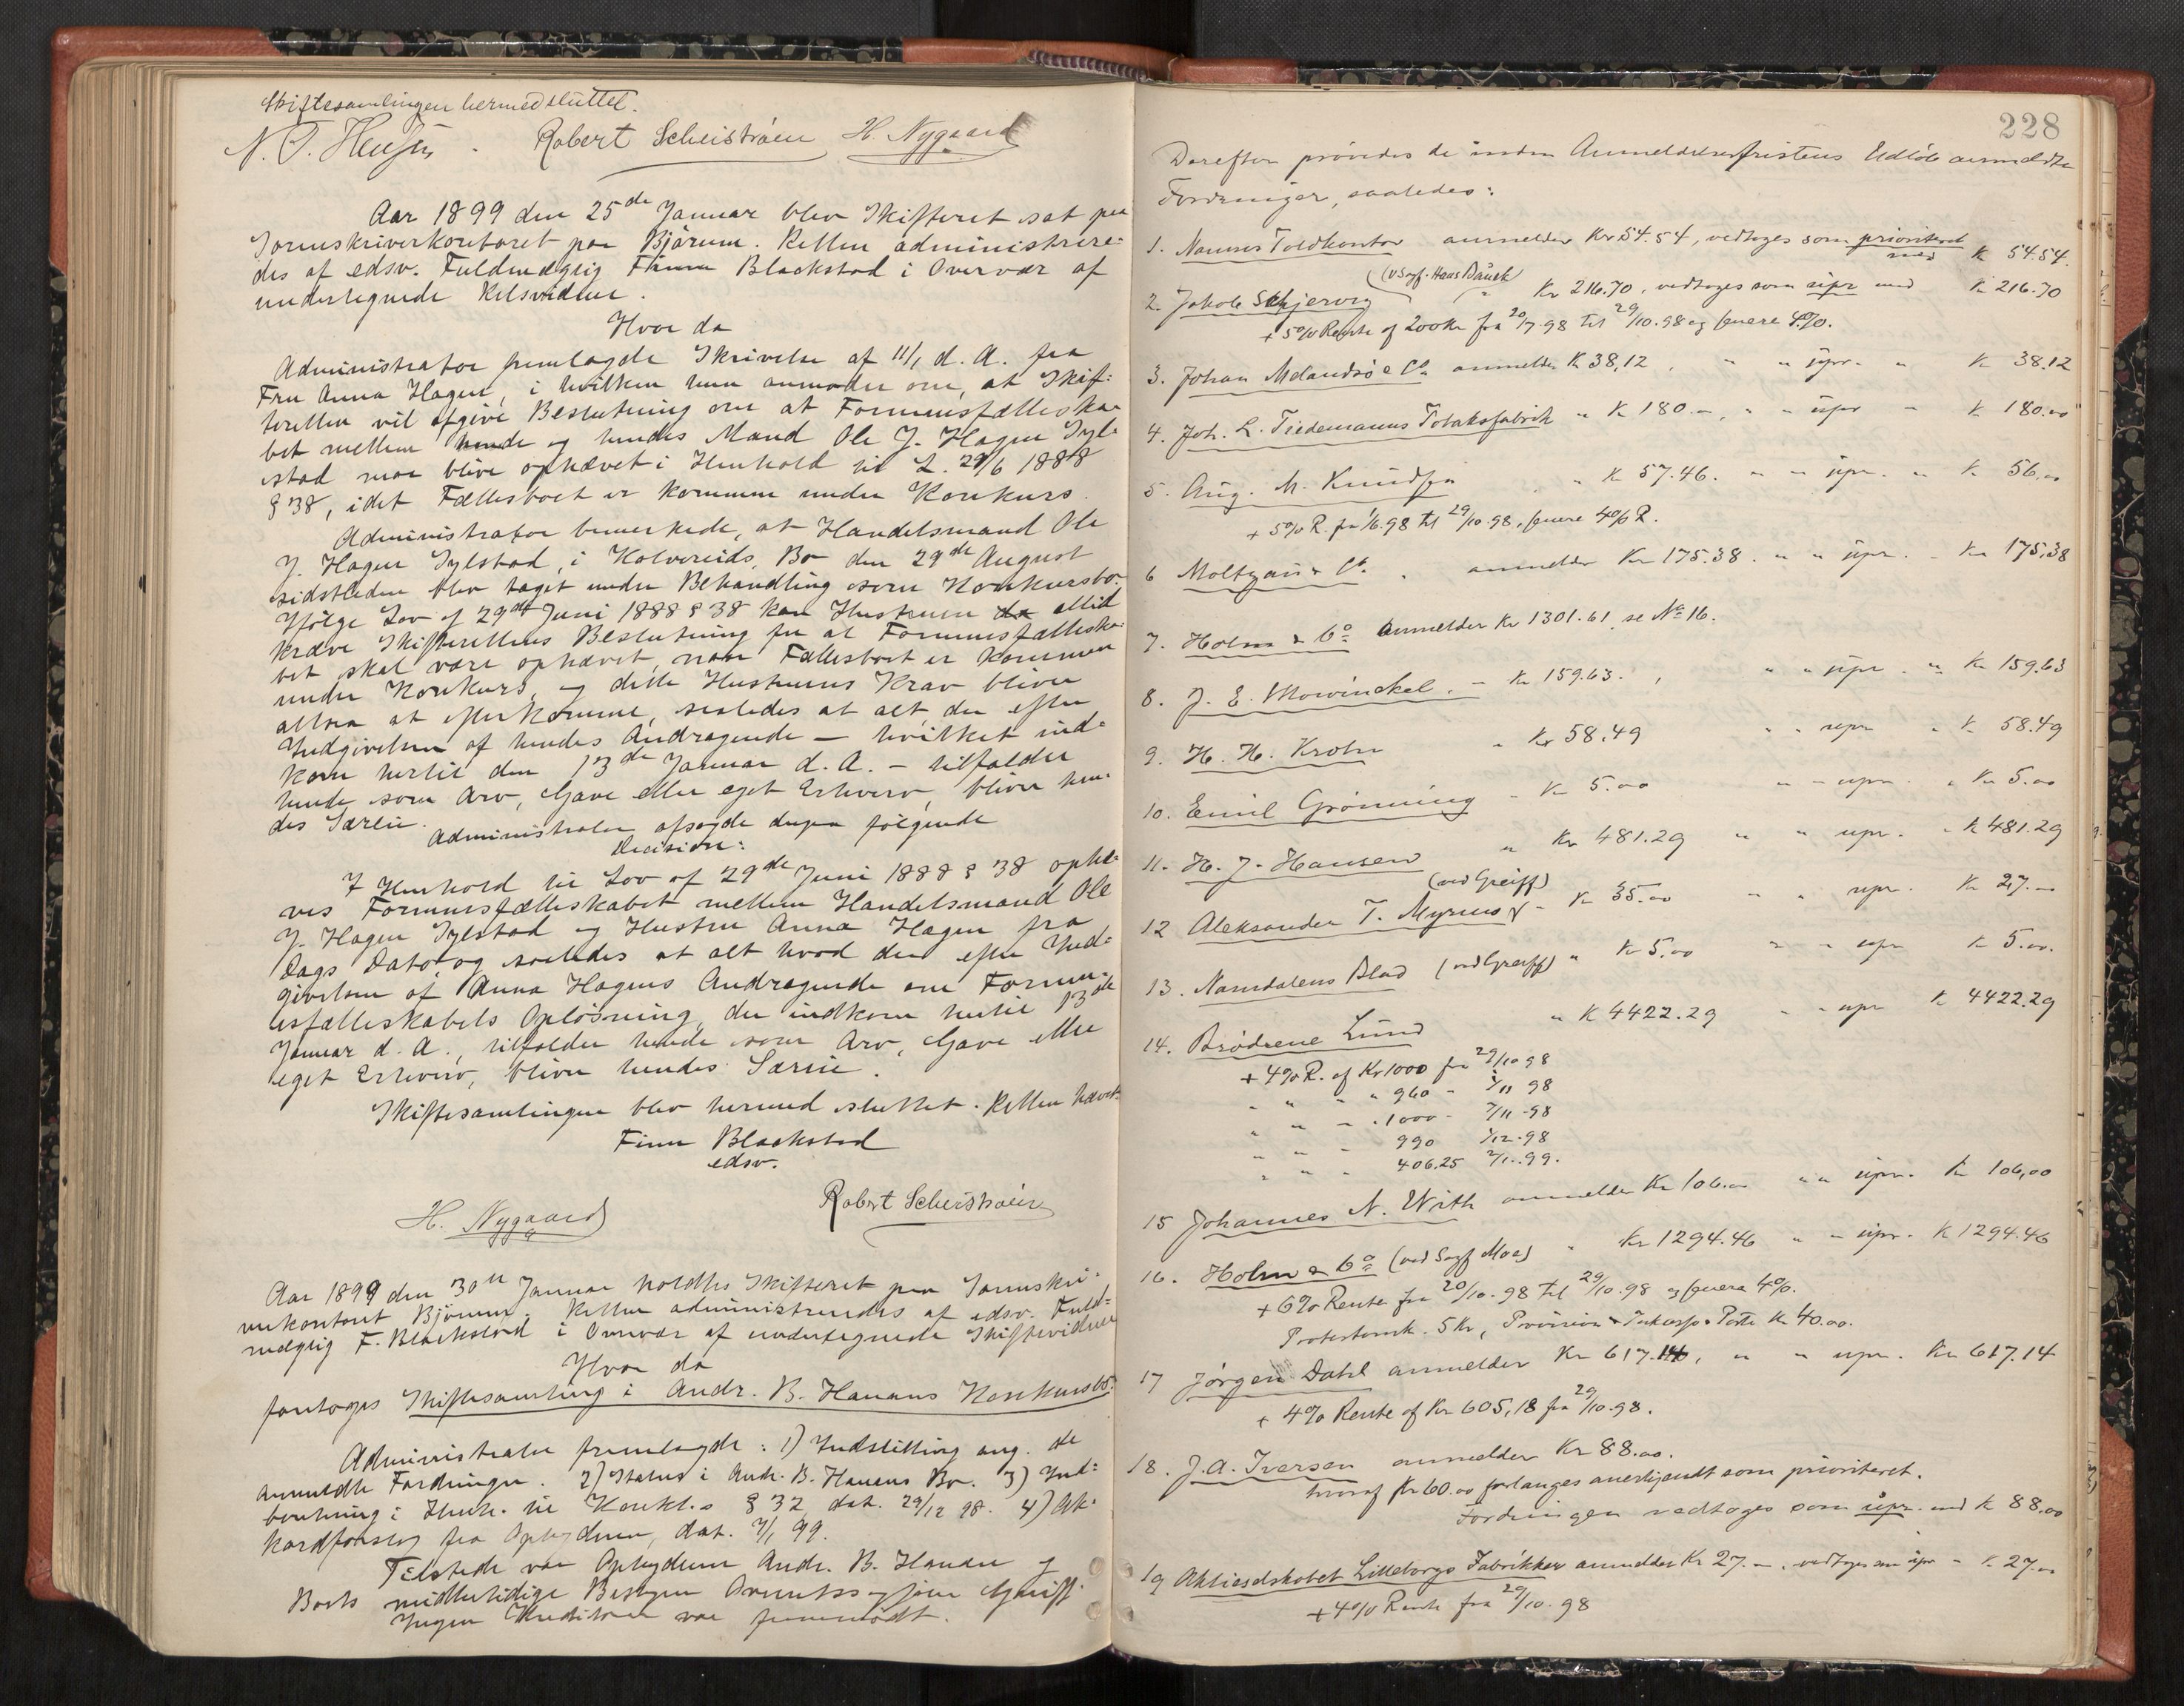 Skiftesamlingen hermed sluttet.
N. P. Hensen. Robert Scheistrøen H. Nygaard
Aar 1899 den 25de Januar blev Skifteret sat paa
Sorenskriverkontoret paa Bjørum. Retten administrere-
des af edsv. Fuldmægtig Finn Blackstad i Overvær af
undertegnede Retsvidner.
Hvor da
Administrator fremlagde Skrivelse af 11/1 d. A. fra
Fru Anna Hagen, i hvilken hun anmoder om, at Skif-
teretten vil afgive Beslutning om at Formuesfælleska-
bet mellem hende og hendes Mand Ole J. Hagen Syl-
stad maa blive ophævet i Henhold til L. 29/6 1888
§ 38, idet Fællesboet er kommen under Konkurs.
Administrator bemerkede, at Handelsmand Ole
J. Hagen Sylstad, i Kolvereids, Bo den 29de August
sidstleden blev taget under Behandling som Konkursbo.
Ifølge Lov af 29de Juni 1888 § 38 kan Hustruen da altid
kræve Skifterettens Beslutning for at Formuesfælleska-
bet skal være ophævet, naar Fællesboet er kommen
under Konkurs, og dette Hustruens Krav bliver
altsaa at efterkomme, saaledes at alt der efter
Indgivelsen af hendes Andragende – hvilket ind-
kom hertil den 13de Januar d. A. – tilfalder
hende som Arv, Gave eller eget Erhverv, bliver hen-
des Særeie.
Administrator afsagde derpaa følgende
Decision:
I Henhold til Lov af 29de Juni 1888 § 38 ophæ-
ves Formuesfælleskabet mellem Handelsmand Ole
J. Hagen Sylstad og Hustru Anna Hagen fra
Dags Dato, og saaledes at alt hvad der efter Ind-
givelsen af Anna Hagens Andragende om Formu-
esfælleskabets Opløsning, der indkom hertil 13de
Januar d. A., tilfalder hende som Arv, Gave eller
eget Erhverv, bliver hendes Særeie.
Skiftesamlingen blev hermed sluttet. Retten hævet.
Finn Blackstad
edsv.
H. Nygaard Robert Scheistrøen
Aar 1899 den 30te Januar holdtes Skifteret paa Sorenskri-
verkontoret Bjørum. Retten administreredes af edsv. Fuld-
mægtig F. Blackstad i Overvær af undertegnede Skiftevidner
Hvor da
foretoges Skiftesamling i Andr. B. Hanans Konkursbo.
Administrator fremlagde: 1) Indstilling ang. de
anmeldte Fordringer. 2) Status i Andr. B. Hanans Bo. 3) Ind-
beretning i Henh. til Konkl.s § 32, dat. 29/12 98. 4) Ak-
kordforslag fra Opbyderen, dat. 7/1 99.
Tilstede var Opbyderen Andr. B. Hanan og
Boets midlertidige Bestyrer Overretssagfører Greiff.
Ingen Kreditorer var fremmødt.
228
Derefter prøvedes de inden Anmeldelsesfristens Udløb anmeldte
Fordringer, saaledes:
1. Namsos Toldkontor anmelder Kr 54.54, vedtoges som prioriteret med K 54.54.
2. Jakob Schjervig (v Sagf. Hans Bauck) " Kr 216.70, vedtoges som upr med K 216.70
+ 5% Rente af 200 Kr fra 20/7.98 til 29/10.98 og senere 4%.
3. Johan Melandsø & Co anmelder K 38,12, " " upr. " K 38.12
4. Joh. L. Tiedemanns Tobaksfabrik " K 180.–, " " upr " K 180.00
5. Aug. M. Knudsen " K 57.46. " " upr. " K 56.00
+ 5% R. fra 1/6.98 til 29/10.98, senere 4% R.
6 Moltzau & Co. anmelder Kr 175.38. " " upr. " Kr 175,38
7. Holm & Co anmelder Kr 1301.61, se No 16.
8. J. E. Mowinckel. " Kr 159.63., " " upr. " Kr 159.63
9. H. H. Krohn " Kr 58.49 " " upr " K 58.49
10. Emil Grønning " Kr 5.00 " " upr. " Kr 5.00
11. H. J. Hansen " Kr 481.29 " " upr. " K 481.29
12 Aleksander T. Myrnes (ved Greiff) " K 35.00 " " upr. Kr 27.–
13. Namdalens Blad (ved Greiff) " Kr 5.00 " " upr K 5.00.
14. Brødrene Lund " K 4422.29 " " upr K 4422.29
+ 4% R. af Kr 1000 fra 29/10 98
" " " " 960 – 1/11 98
" " " . 1000 – 7/11 98
" " " 990 1/12.98
" " " 406.25 2/1.99.
15 Johannes N. With anmelder Kr 106.– " " upr. K 106,00
16. Holm & Co (ved Sagf Moe) " Kr 1294.46 " " upr. K 1294.46
+ 6% Rente fra 20/10.98 til 29/10.98 og senere 4%.
Protestomk. 5 Kr, Provision & Inkasso & Porto Kr 40.00.
17 Jørgen Dahl anmelder Kr 617.14, " " upr. Kr 617.14
+ 4% Rente af Kr 605,18 fra 29/10.98.
18. J. A. Iversen anmelder Kr 88.00.
hvoraf Kr 60.00 forlanges anerkjendt som prioriteret.
Fordringen vedtoges som upr. med K 88.00
19 Aktieselskabet Lilleborgs Fabrikker anmelder Kr 27.–, vedtoges som upr " K 27.00
+ 4% Rente fra 29/10.98